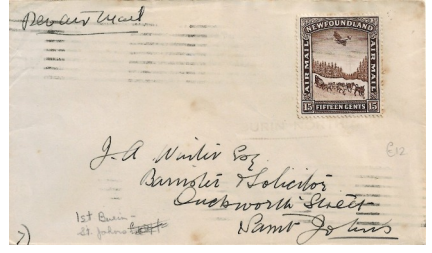 Per air Mail
NEWFOUNDLAND
AIR MAIL
AIR MAIL
15 FIFTEEN CENTS 15
£12
J. A Winter Esq
Barrister & Solicitor
Duckworth Street
Saint Johns
1st Burin -
St. Johns